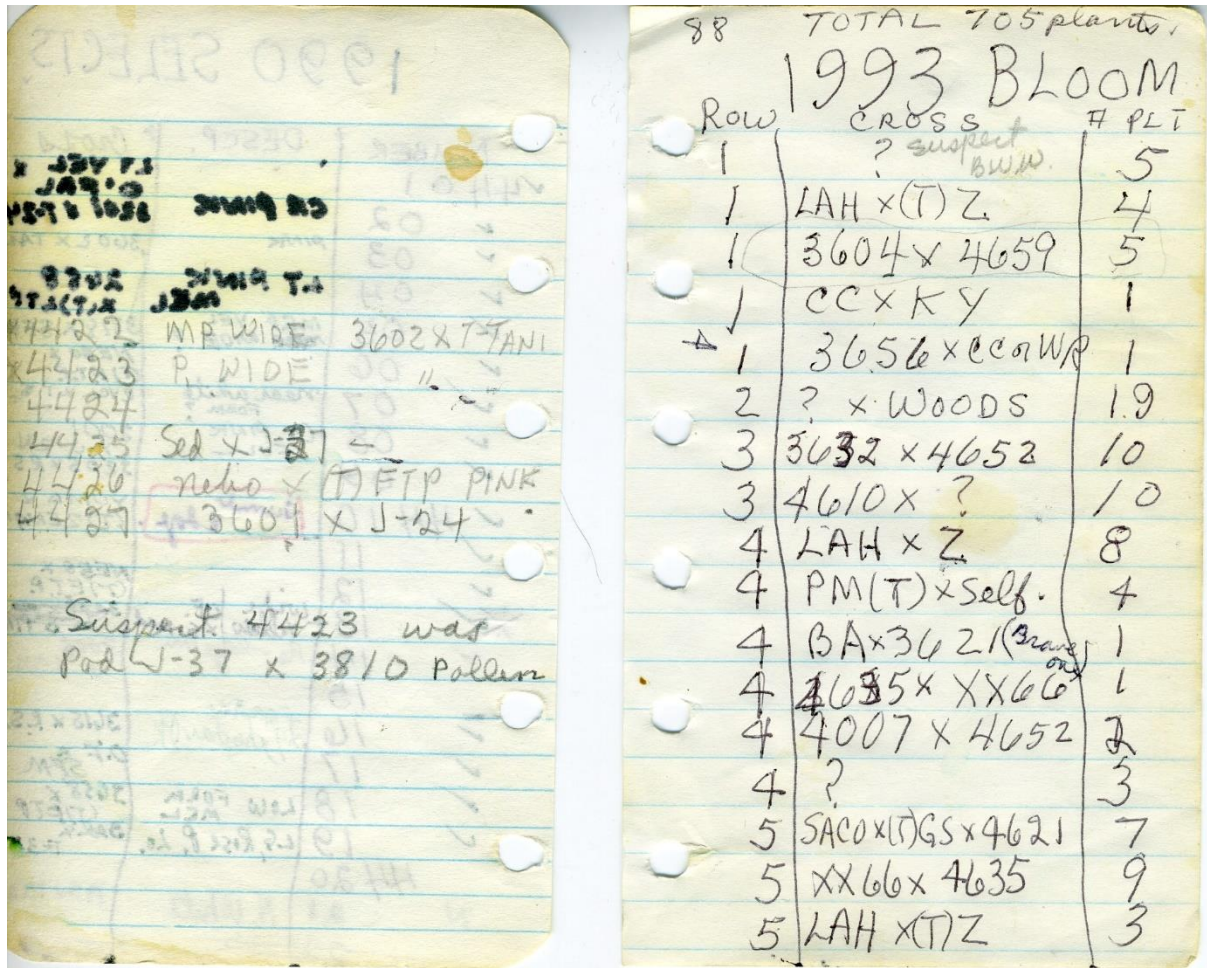 x4422 MP WIDE 3602 X T-TANI
x4423 P, WIDE "
4424
4425 Sed x J-37 -
4426 nebo x (T) FTP PINK
4427 3604 x J-24
Suspect 4423 was
Pod J-37 x 3810 Pollen
88 TOTAL 705 plants.
1993 BLOOM
ROW CROSS # PLT
1 ? Suspect B.W.W. 5
1 LAH x(T) Z 4
1 3604 x 4659 5
1 CC x KY 1
1 3656 x CC or WR 1
2 ? x WOODS 19
3 3632 x 4652 10
3 4610 x ? 10
4 LAH x Z 8
4 PM(T) x Self. 4
4 BA x 3621 (Brave one) 1
4 4635 x XX66 1
4 4007 x 4652 2
4 ? 3
5 SACO x(T)GS x 4621 7
5 XX66 x 4635 9
5 LAH x(T)Z 3